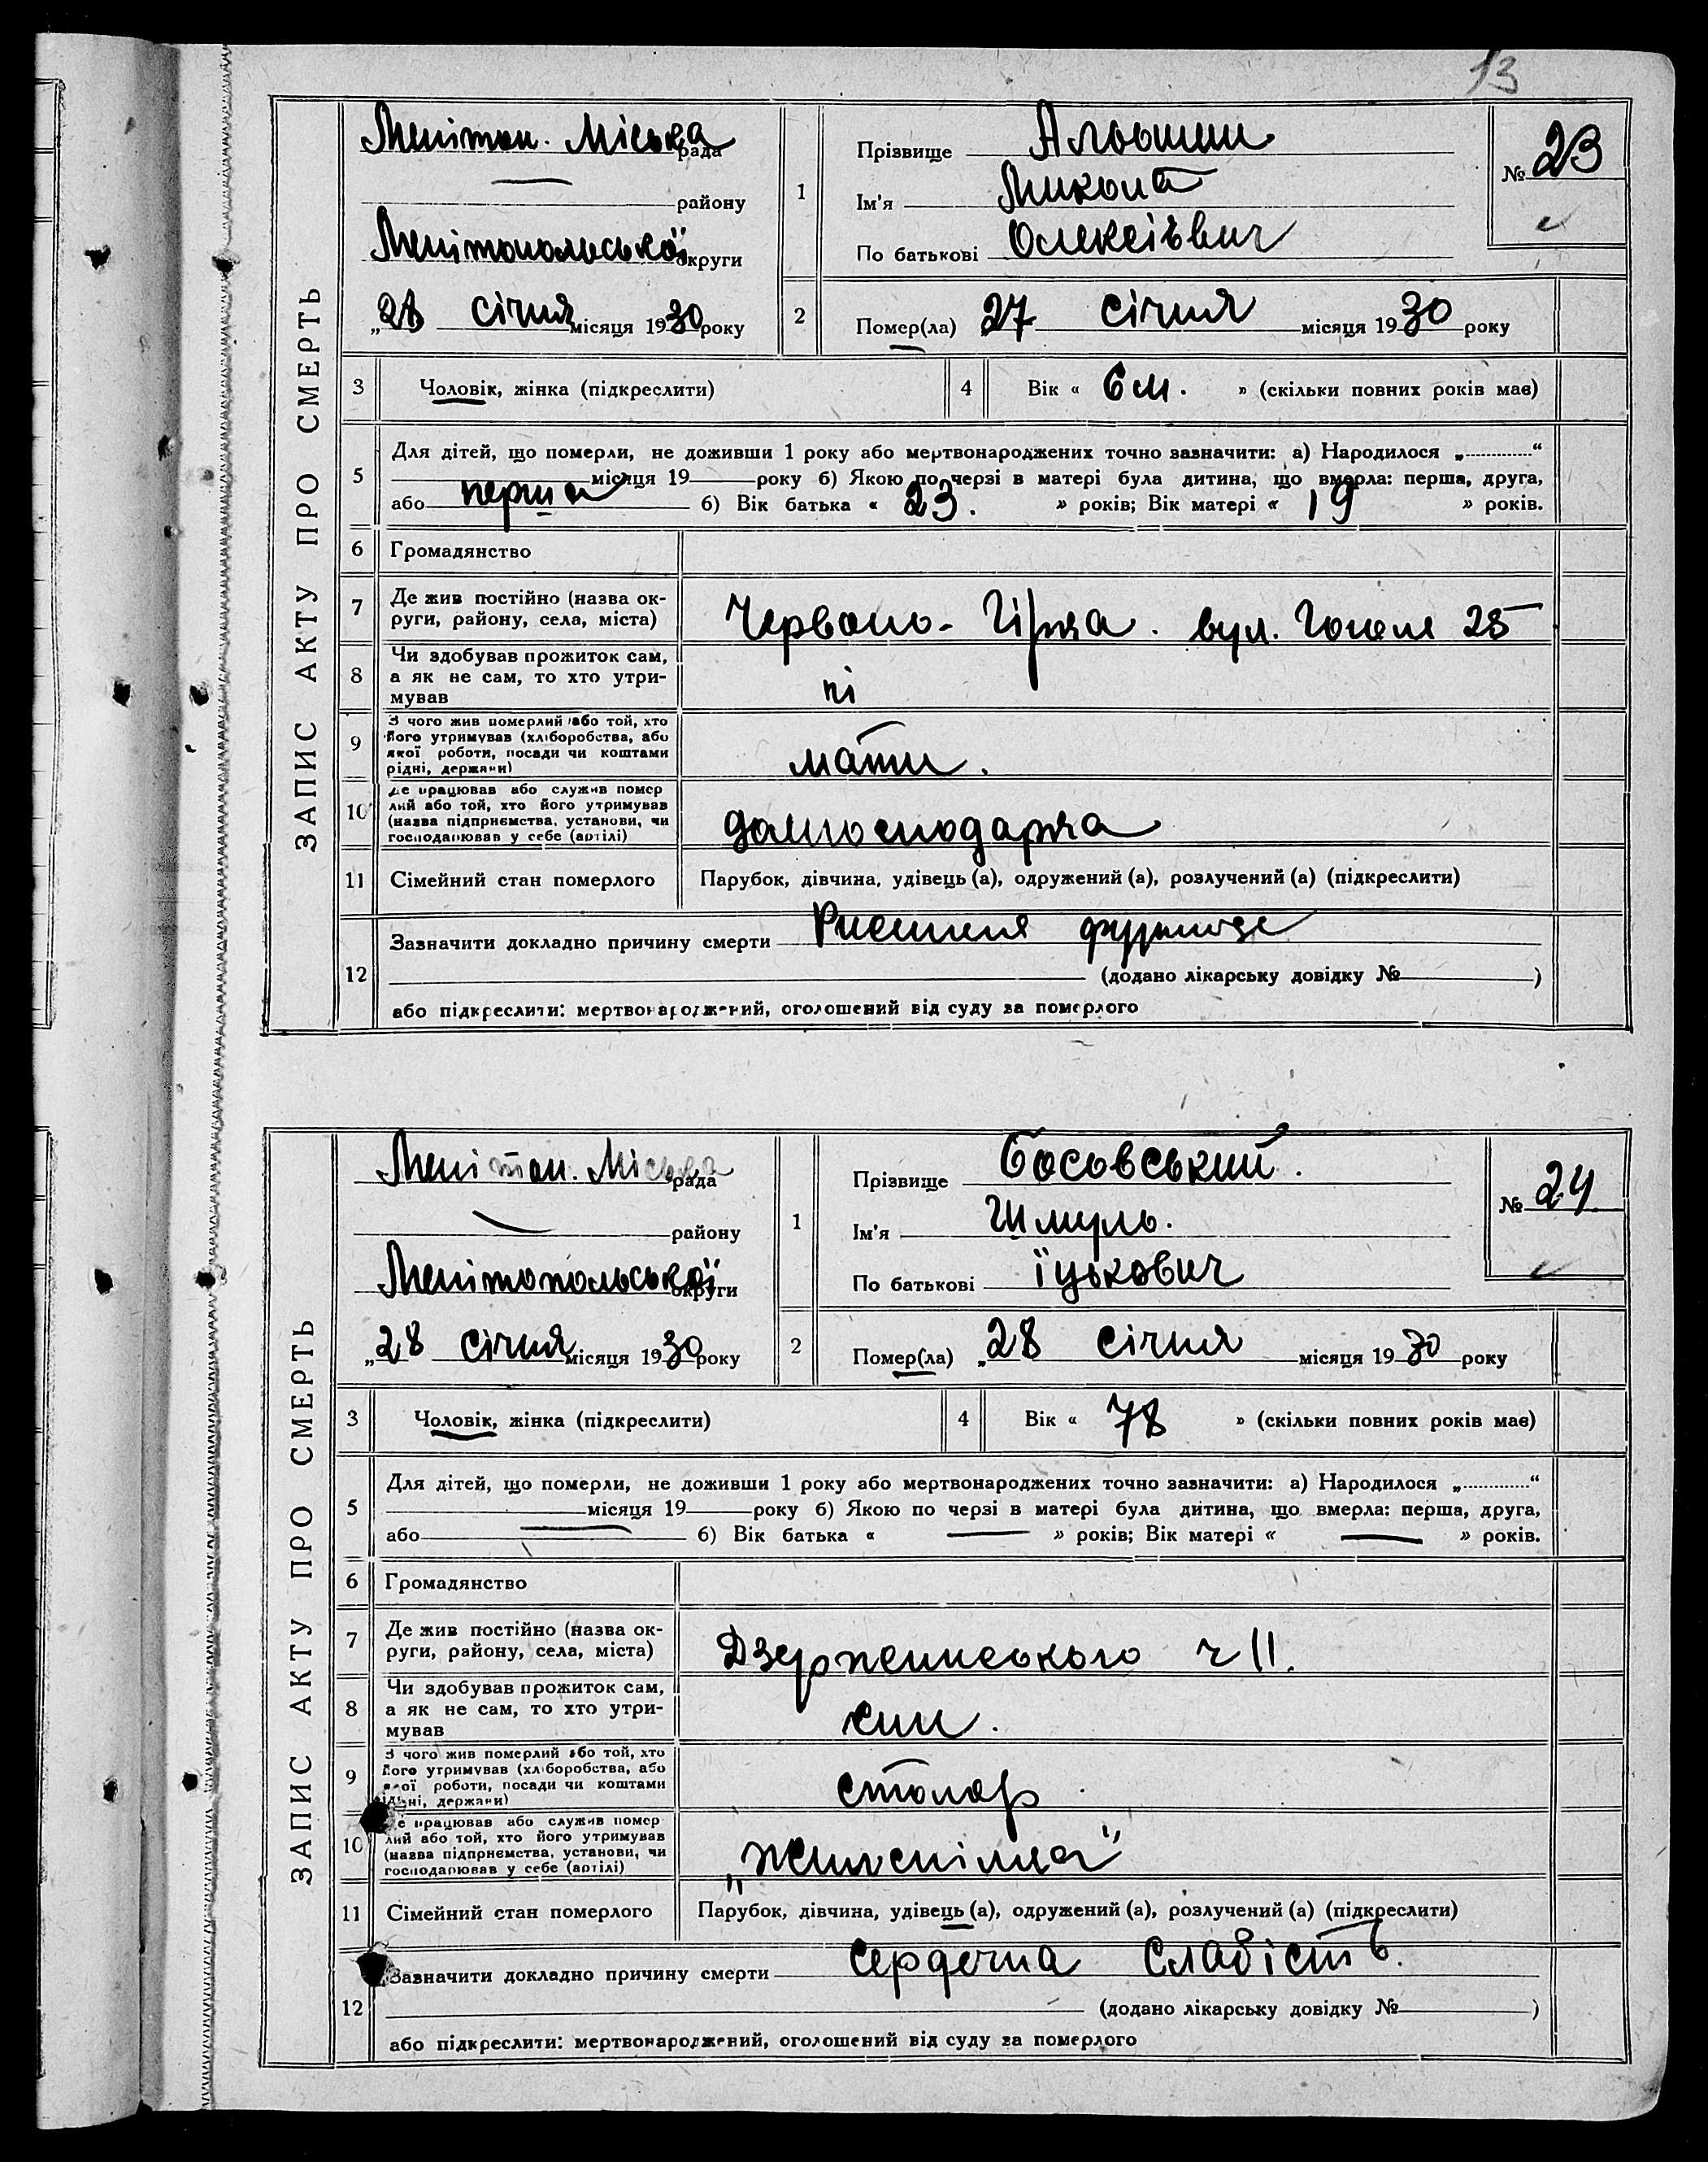 13
ЗАПИС АКТУ ПРО СМЕРТЬ
Мелітоп. Міська рада
району
Мелітопольської округи
„28 січня місяця 1930 року
1
Прізвище Альошин
Ім'я Микола
По батькові Олексієвич
№ 23
2
Помер(ла) 27 січня місяця 1930 року
3 Чоловік, жінка (підкреслити)
4 Вік « 6 м. » (скільки повних років має)
5 Для дітей, що померли, не доживши 1 року або мертвонароджених точно зазначити: а) Народилося „ “
місяця 19 року б) Якою по черзі в матері була дитина, що вмерла: перша, друга,
або перша б) Вік батька « 23. » років; Вік матері « 19 » років.
6 Громадянство
7 Де жив постійно (назва ок-
руги, району, села, міста)
Червоно-Гірка. вул. Гоголя 25
8 Чи здобував прожиток сам,
а як не сам, то хто утри-
мував
ні
9 З чого жив померлий або той, хто
його утримував (хліборобства, або
якої роботи, посади чи коштами
рідні, держави)
мати.
10 Де працював або служив помер
лий або той, хто його утримував
(назва підприємства, установи, чи
господарював у себе (артілі)
домгосподарка
11 Сімейний стан померлого
Парубок, дівчина, удівець (а), одружений (а), розлучений (а) (підкреслити)
12 Зазначити докладно причину смерти
(додано лікарську довідку № )
або підкреслити: мертвонароджений, оголошений від суду за померлого
ЗАПИС АКТУ ПРО СМЕРТЬ
Мелітоп. Міська рада
району
Мелітопольської округи
„28 січня місяця 1930 року
1
Прізвище Босовський.
Ім'я Шмуль.
По батькові Іцькович
№ 24
2
Помер(ла) „28 січня місяця 1930 року
3 Чоловік, жінка (підкреслити)
4 Вік « 78 » (скільки повних років має)
5 Для дітей, що померли, не доживши 1 року або мертвонароджених точно зазначити: а) Народилося „ “
місяця 19 року б) Якою по черзі в матері була дитина, що вмерла: перша, друга,
або б) Вік батька « » років; Вік матері « » років.
6 Громадянство
7 Де жив постійно (назва ок-
руги, району, села, міста)
Дзержинського ч 11.
8 Чи здобував прожиток сам,
а як не сам, то хто утри-
мував
син.
9 З чого жив померлий або той, хто
його утримував (хліборобства, або
якої роботи, посади чи коштами
рідні, держави)
столяр
10 Де працював або служив помер
лий або той, хто його утримував
(назва підприємства, установи, чи
господарював у себе (артілі)
„Жилспілка“
11 Сімейний стан померлого
Парубок, дівчина, удівець (а), одружений (а), розлучений (а) (підкреслити)
12 Зазначити докладно причину смерти Сердечна Слабість.
(додано лікарську довідку № )
або підкреслити: мертвонароджений, оголошений від суду за померлого